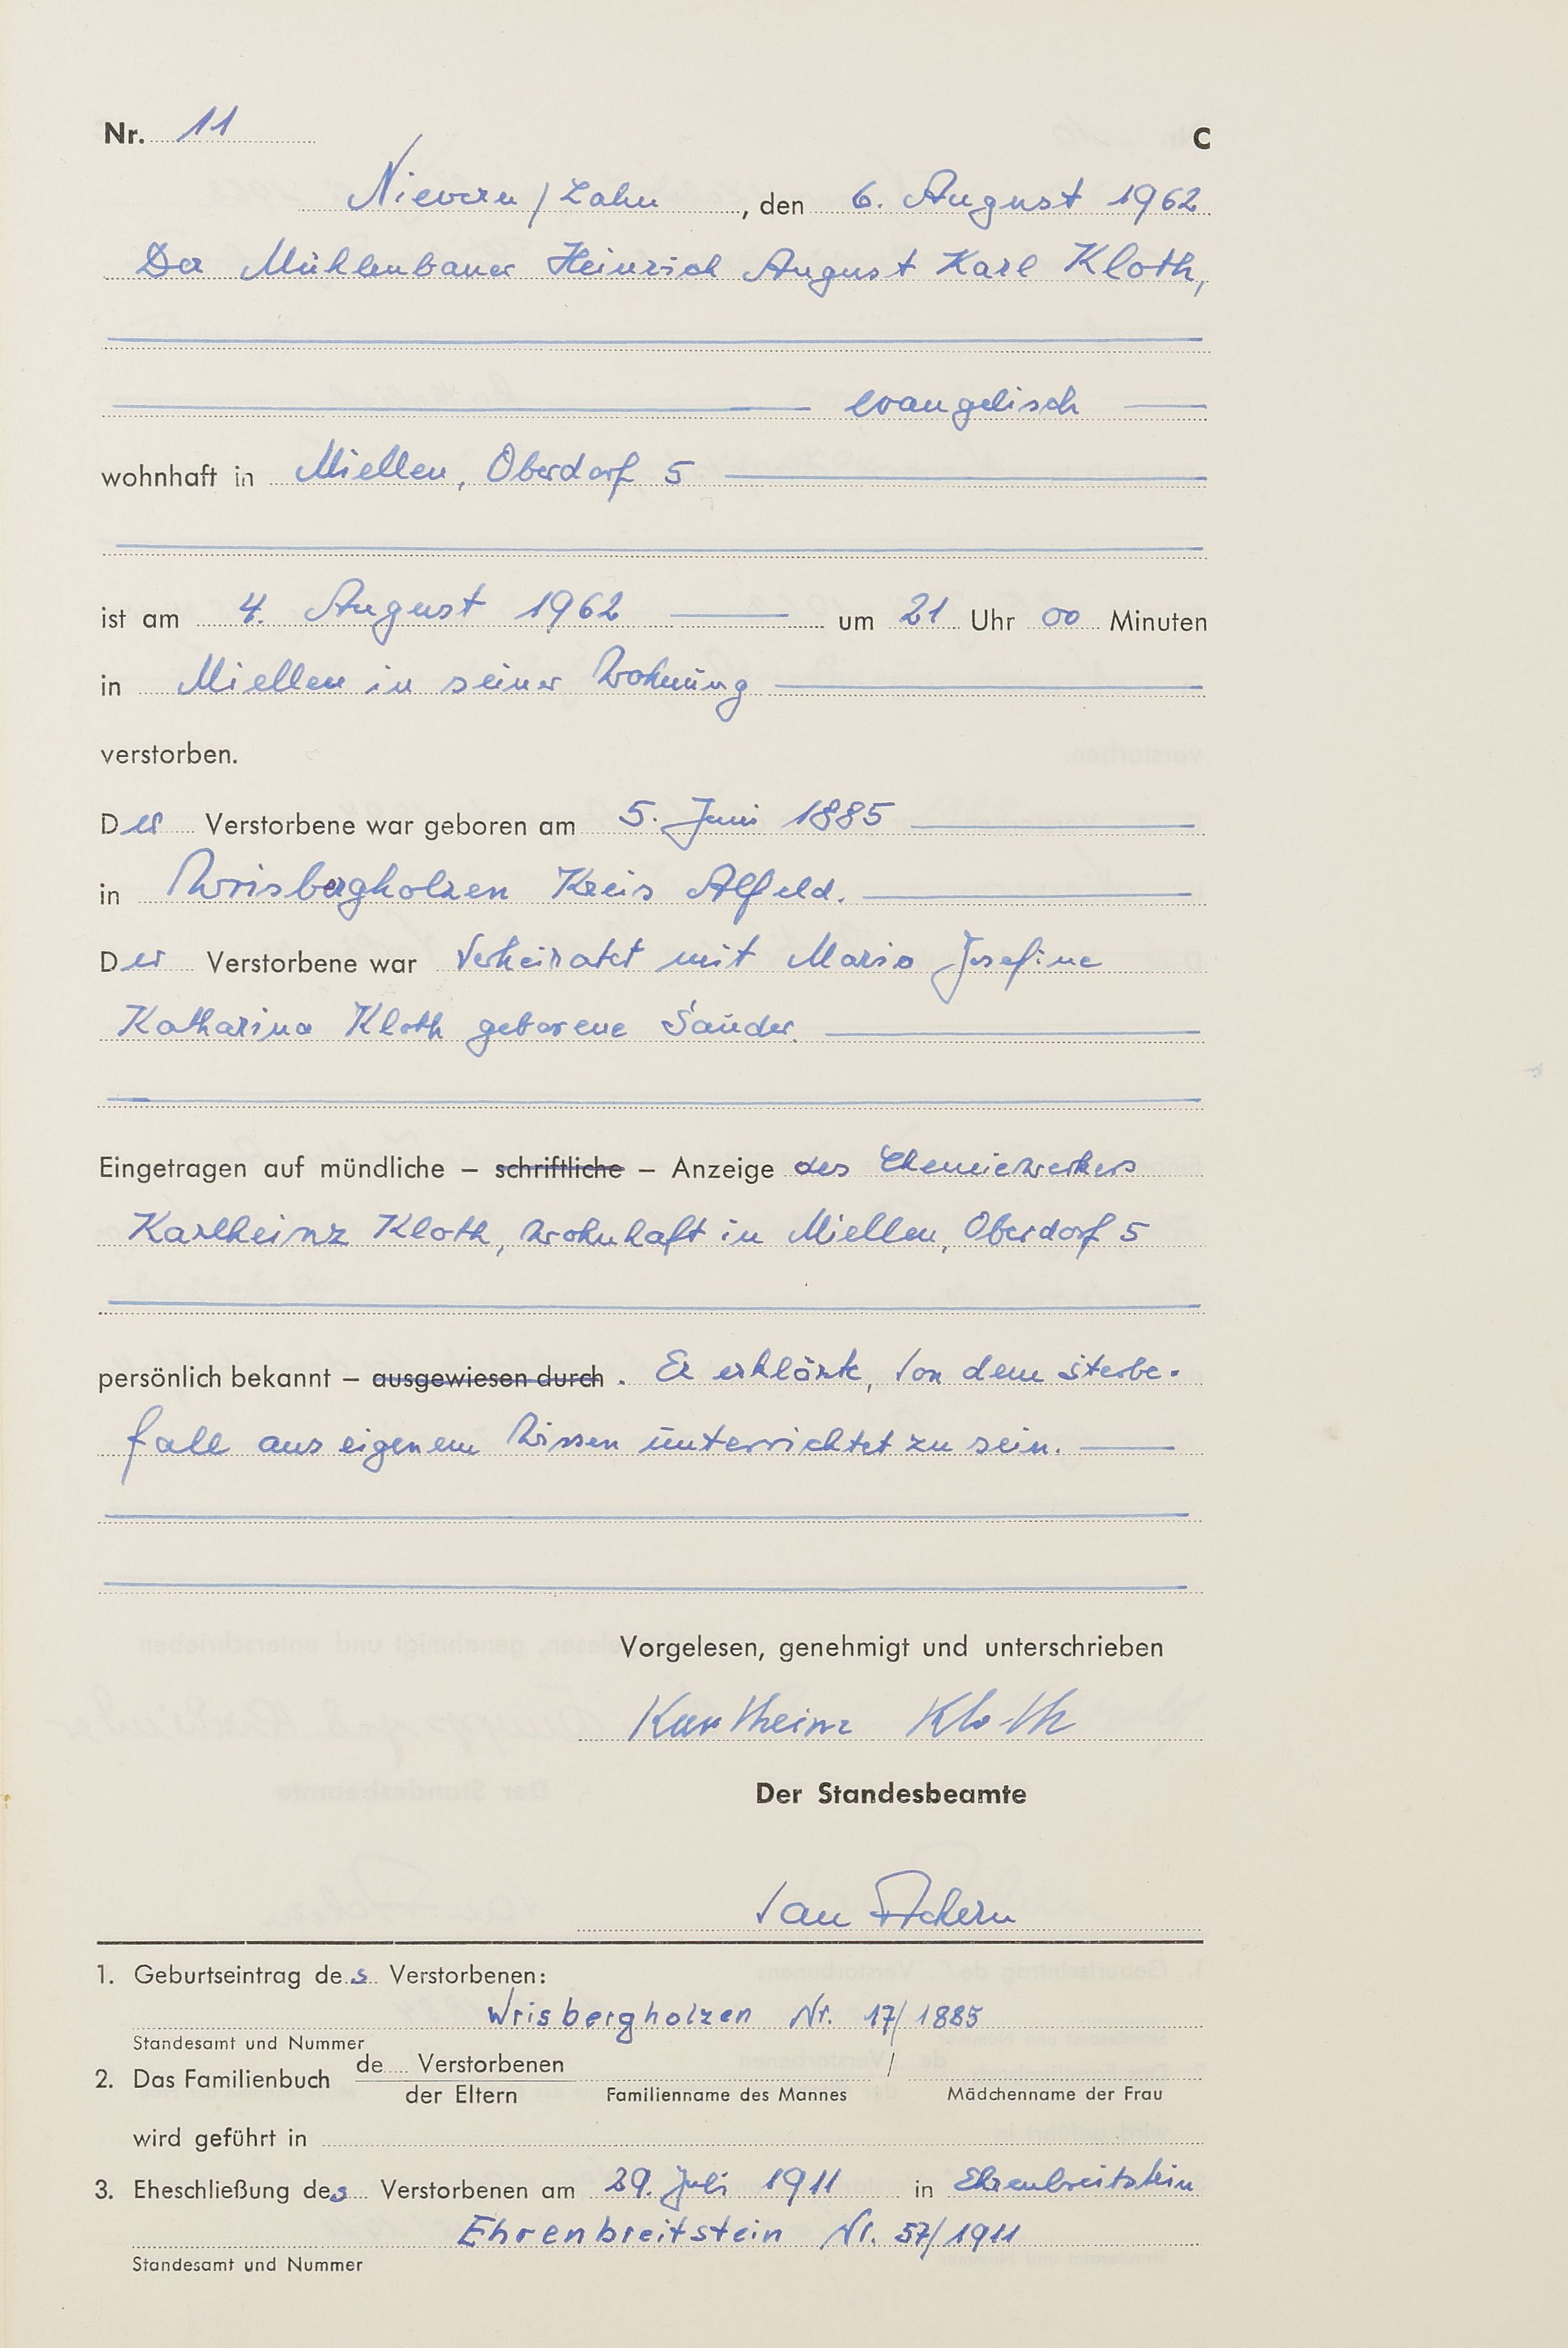 Nr. 11 C
Nievern/Lahn, den 6. August 1962
Der Mühlenbauer Heinrich August Karl Kloth,
evangelisch
wohnhaft in Miellen, Oberdorf 5
ist am 4. August 1962 um 21 Uhr 00 Minuten
in Miellen in seiner Wohnung
verstorben.
Der Verstorbene war geboren am 5. Juni 1885
in Wrisbergholzen Kreis Alfeld.
Der Verstorbene war verheiratet mit Maria Josefine
Katharina Kloth geborene Sauder.
Eingetragen auf mündliche – schriftliche – Anzeige des Chemiewerkers
Karlheinz Kloth, wohnhaft in Miellen, Oberdorf 5
persönlich bekannt – ausgewiesen durch. Er erklärte, von dem Sterbe-
fall aus eigenem Wissen unterrichtet zu sein.
Vorgelesen, genehmigt und unterschrieben
Karlheinz Kloth
Der Standesbeamte
van
1. Geburtseintrag des Verstorbenen:
Wrisbergholzen Nr. 17/1885
Standesamt und Nummer
2. Das Familienbuch de Verstorbenen /
der Eltern Familienname des Mannes Mädchenname der Frau
wird geführt in
3. Eheschließung des Verstorbenen am 29. Juli 1911 in Ehrenbreitstein
Ehrenbreitstein Nr. 57/1911
Standesamt und Nummer